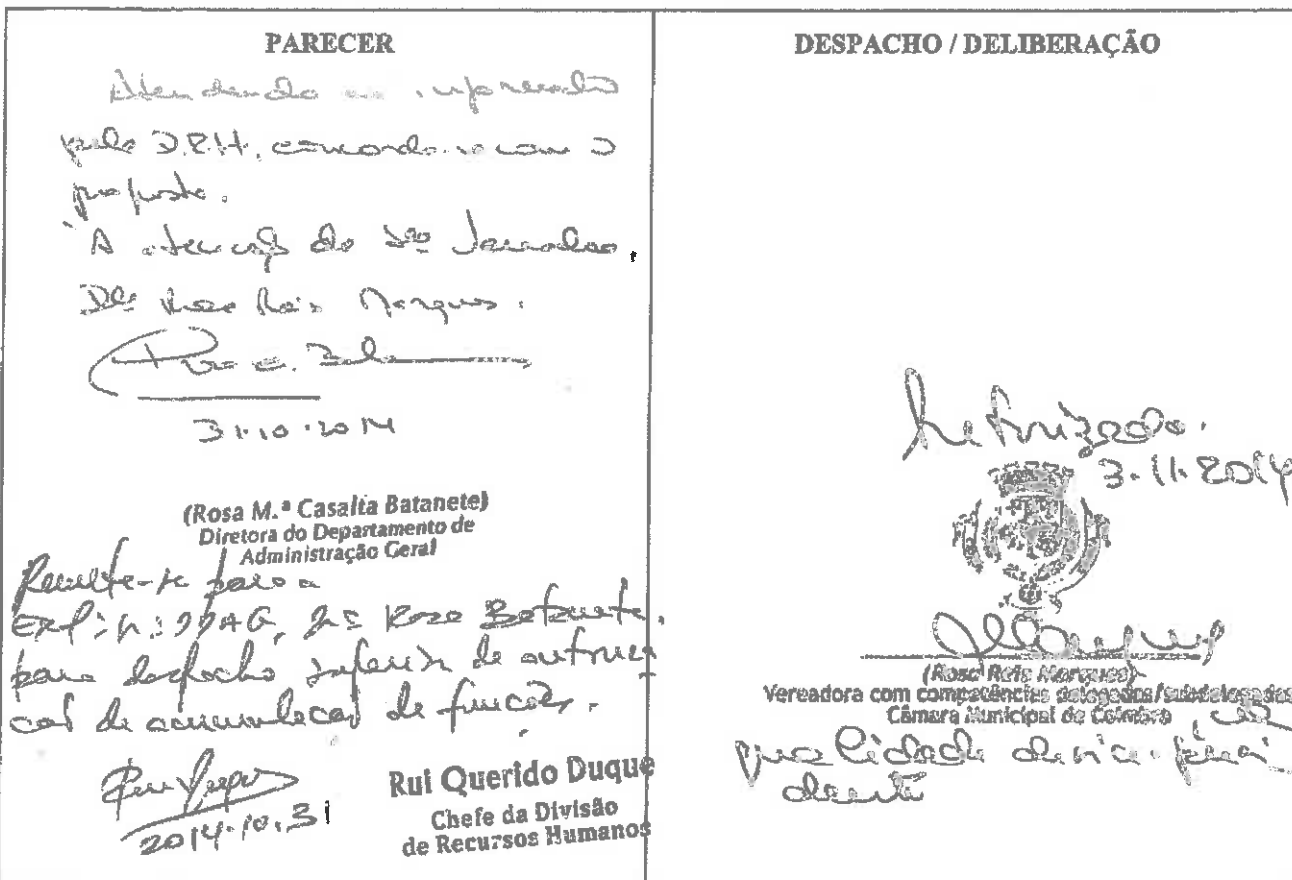 PARECER
Atendendo ao informado
pela D.R.H, concordo com o
proposto.
À atenção da Srª Vereadora,
Drª Rosa Reis Marques.
31.10.2014
(Rosa M.ª Casalta Batanete)
Diretora do Departamento de
Administração Geral
Remete-se para a
DDAG, Drª Rosa Batanete,
para despacho superior de autoriza-
ção de acumulação de funções.
2014.10.31
Rui Querido Duque
Chefe da Divisão
de Recursos Humanos
DESPACHO / DELIBERAÇÃO
Autorizado.
3.11.2014
(Rosa Reis Marques)
Vereadora com competências delegadas/subdelegadas
Câmara Municipal de Coimbra, na
qualidade de vice-presi
dente